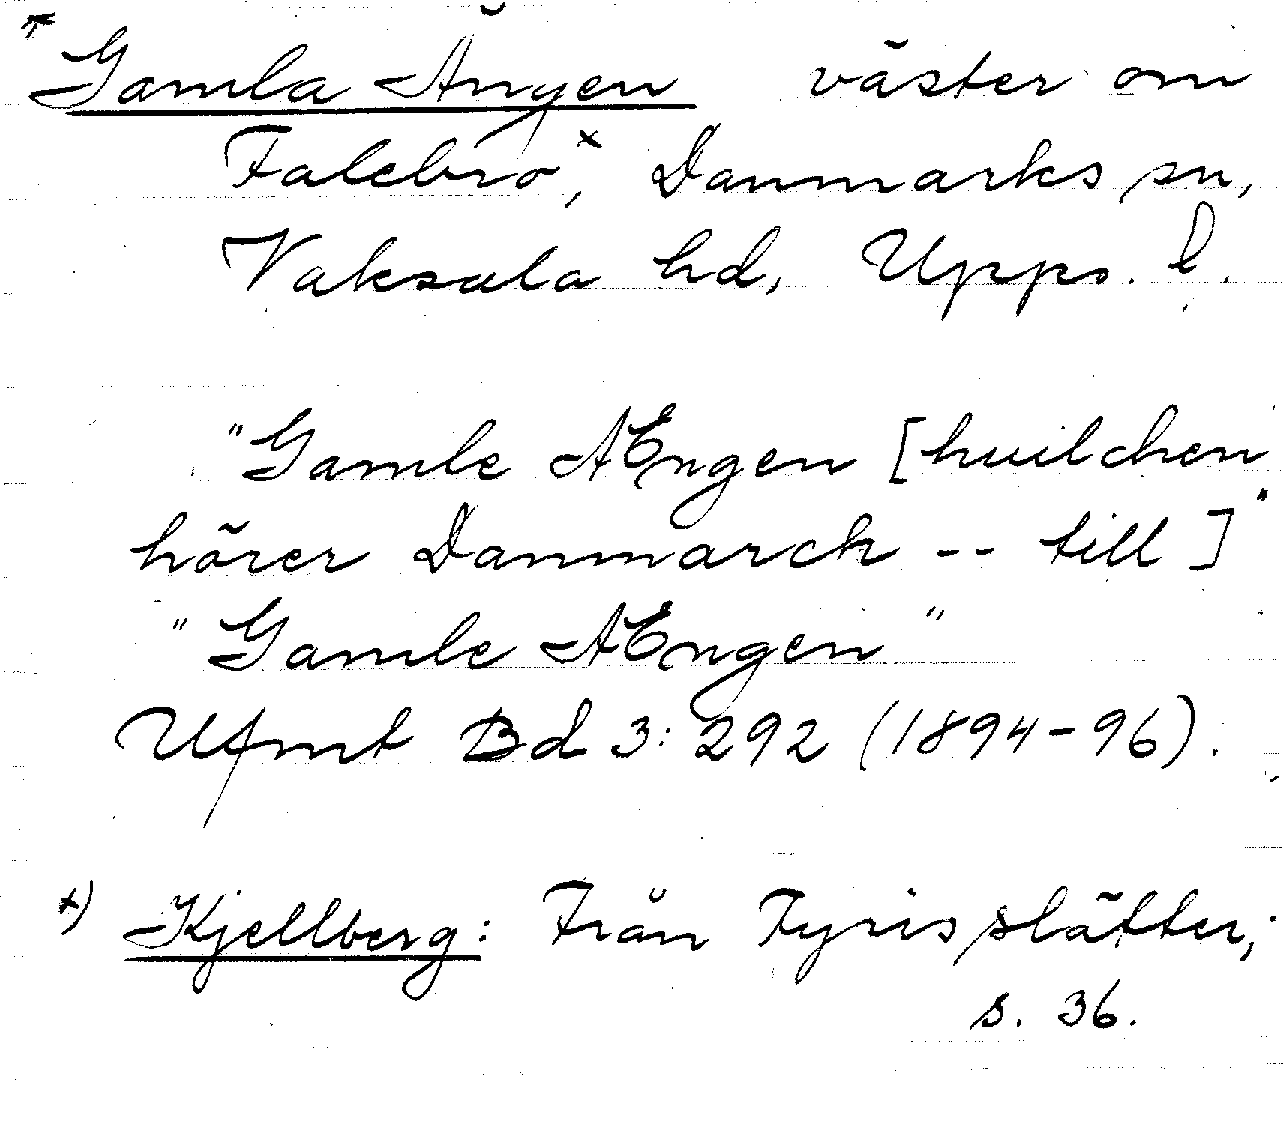 * Gamla Ängen väster om
Falebro x, Danmarks sn,
Vaksala hd, Upps. l.
"Gamle AEngen [huilchen
hörer Danmarck -- till]"
"Gamle AEngen"
Ufmt Bd 3: 292 (1894-96).
x) Kjellberg: Från Tyris slätter,
s. 36.